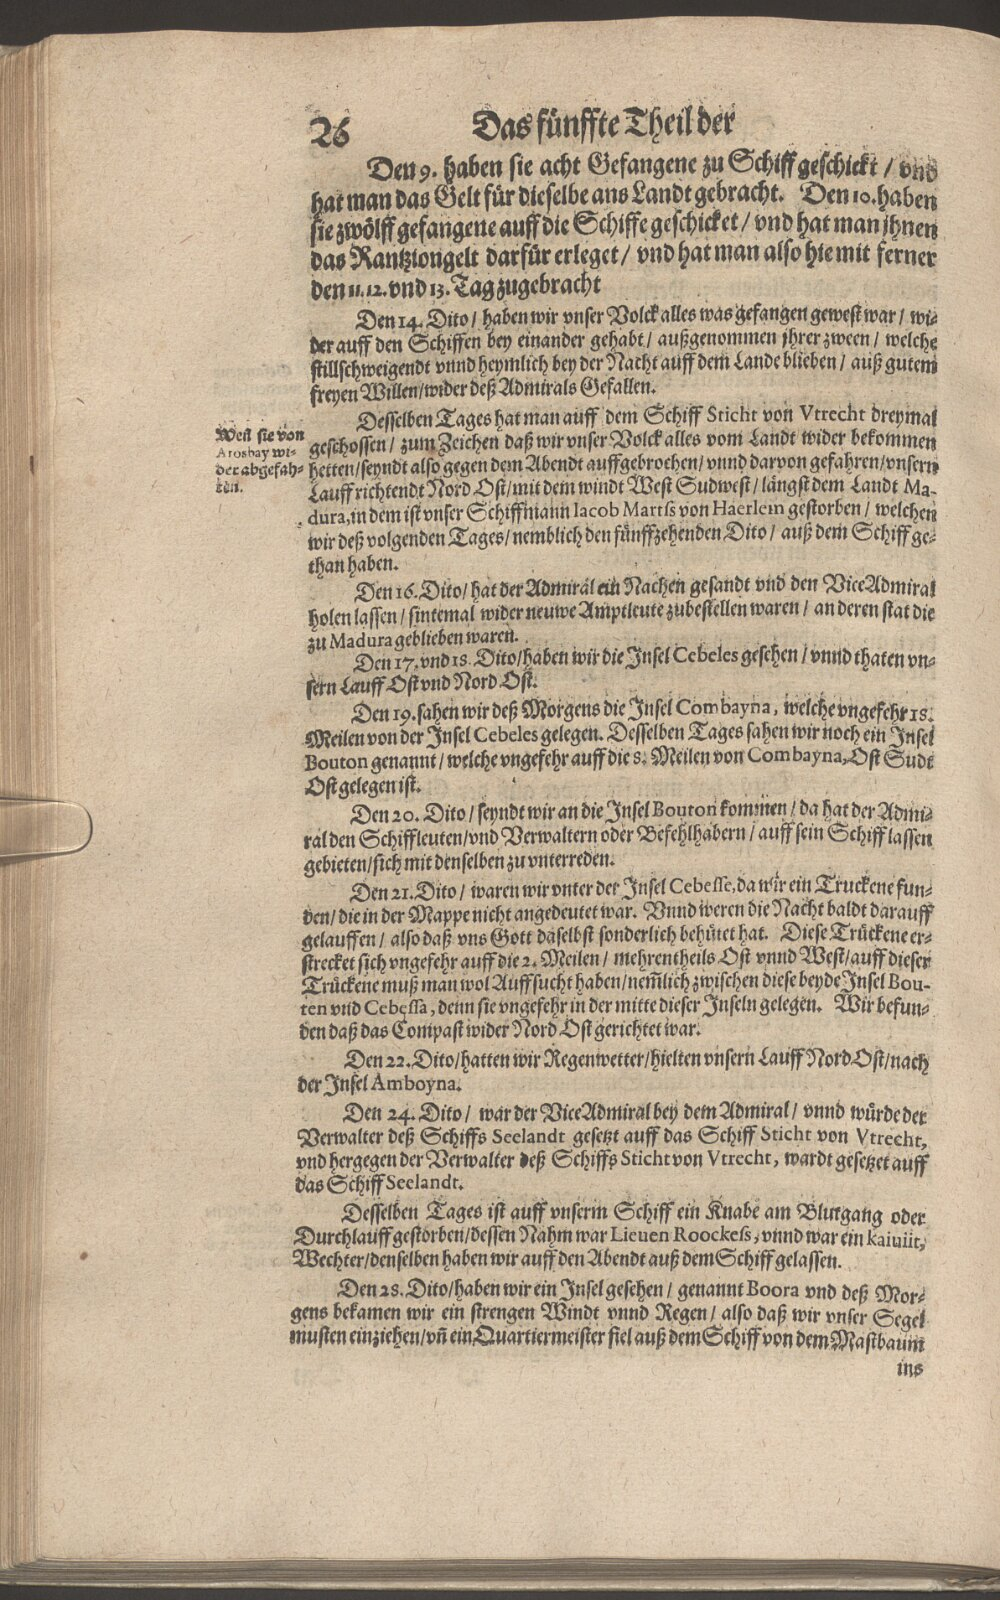 26 Das fünffte Theil der
Den 9. haben sie acht Gefangene zu Schiff geschickt / vnd
hat man das Gelt für dieselbe ans Landt gebracht. Den 10. haben
sie zwölff gefangene auff die Schiffe geschicket / vnd hat man jhnen
das Rantziongelt darfür erleget / vnd hat man also hiemit ferner
den 11. 12. vnd 13. Tag zugebracht
Den 14. Dito / haben wir vnser Volck alles was gefangen gewest war / wi-
der auff den Schiffen bey einander gehabt / außgenommen jhrer zween / welche
stillschweigendt vnnd heymlich bey der Nacht auff dem Lande blieben / auß gutem
freyen Willen / wider deß Admirals Gefallen.
Desselben Tages hat man auff dem Schiff Sticht von Vtrecht dreymal
geschossen / zum Zeichen daß wir vnser Volck alles vom Landt wider bekommen
hetten / seyndt also gegen dem Abendt auffgebrochen / vnnd darvon gefahren / vnsern
Lauff richtendt Nord Ost / mit dem windt West Sudwest / längst dem Landt Ma-
dura, in dem ist vnser Schiffmann Iacob Martss von Haerlem gestorben / welchen
wir deß volgenden Tages / nemblich den fünffzehenden Dito / auß dem Schiff ge-
than haben.
Weil sie von
Arosbay wi-
der abgefah-
ren.
Den 16. Dito / hat der Admiral ein Nachen gesandt vnd den ViceAdmiral
holen lassen / sintemal wider neuwe Amptleute zubestellen waren / an deren stat die
zu Madura geblieben waren.
Den 17. vnd 18. Dito / haben wir die Insel Cebeles gesehen / vnnd thaten vn-
sern Lauff Ost vnd Nord Ost.
Den 19. sahen wir deß Morgens die Insel Combayna, welche vngefehr 18.
Meilen von der Insel Cebeles gelegen. Desselben Tages sahen wir noch ein Insel
Bouton genannt / welche vngefehr auff die 8. Meilen von Combayna, Ost Sudt
Ost gelegen ist.
Den 20. Dito / seyndt wir an die Insel Bouton kommen / da hat der Admi-
ral den Schiffleuten / vnd Verwaltern oder Befehlhabern / auff sein Schiff lassen
gebieten / sich mit denselben zu vnterreden.
Den 21. Dito / waren wir vnter der Insel Cebesse, da wir ein Truckene fun-
den / die in der Mappe nicht angedeutet war. Vnnd weren die Nacht baldt darauff
gelauffen / also daß vns Gott daselbst sonderlich behütet hat. Diese Trückene er-
strecket sich vngefehr auff die 2. Meilen / mehrentheils Ost vnnd West / auff dieser
Trückene muß man wol Auffsucht haben / nem̃lich zwischen diese beyde Insel Bou-
ten vnd Cebessa, denn sie vngefehr in der mitte dieser Inseln gelegen. Wir befun-
den daß das Compast wider Nord Ost gerichtet war.
Den 22. Dito / hatten wir Regenwetter / hielten vnsern Lauff Nord Ost / nach
der Insel Amboyna.
Den 24. Dito / war der ViceAdmiral bey dem Admiral / vnnd würde der
Verwalter deß Schiffs Seelandt gesetzt auff das Schiff Sticht von Vtrecht,
vnd hergegen der Verwalter deß Schiffs Sticht von Vtrecht, wardt gesetzet auff
das Schiff Seelandt.
Desselben Tages ist auff vnserm Schiff ein Knabe am Blutgang oder
Durchlauff gestorben / dessen Nahm war Lieuen Roockess, vnnd war ein kaiuiit,
Wechter / denselben haben wir auff den Abendt auß dem Schiff gelassen.
Den 28. Dito / haben wir ein Insel gesehen / genannt Boora vnd deß Mor-
gens bekamen wir ein strengen Windt vnnd Regen / also daß wir vnser Segel
musten einziehen / vn̄ ein Quartiermeister fiel auß dem Schiff von dem Mastbaum
ins